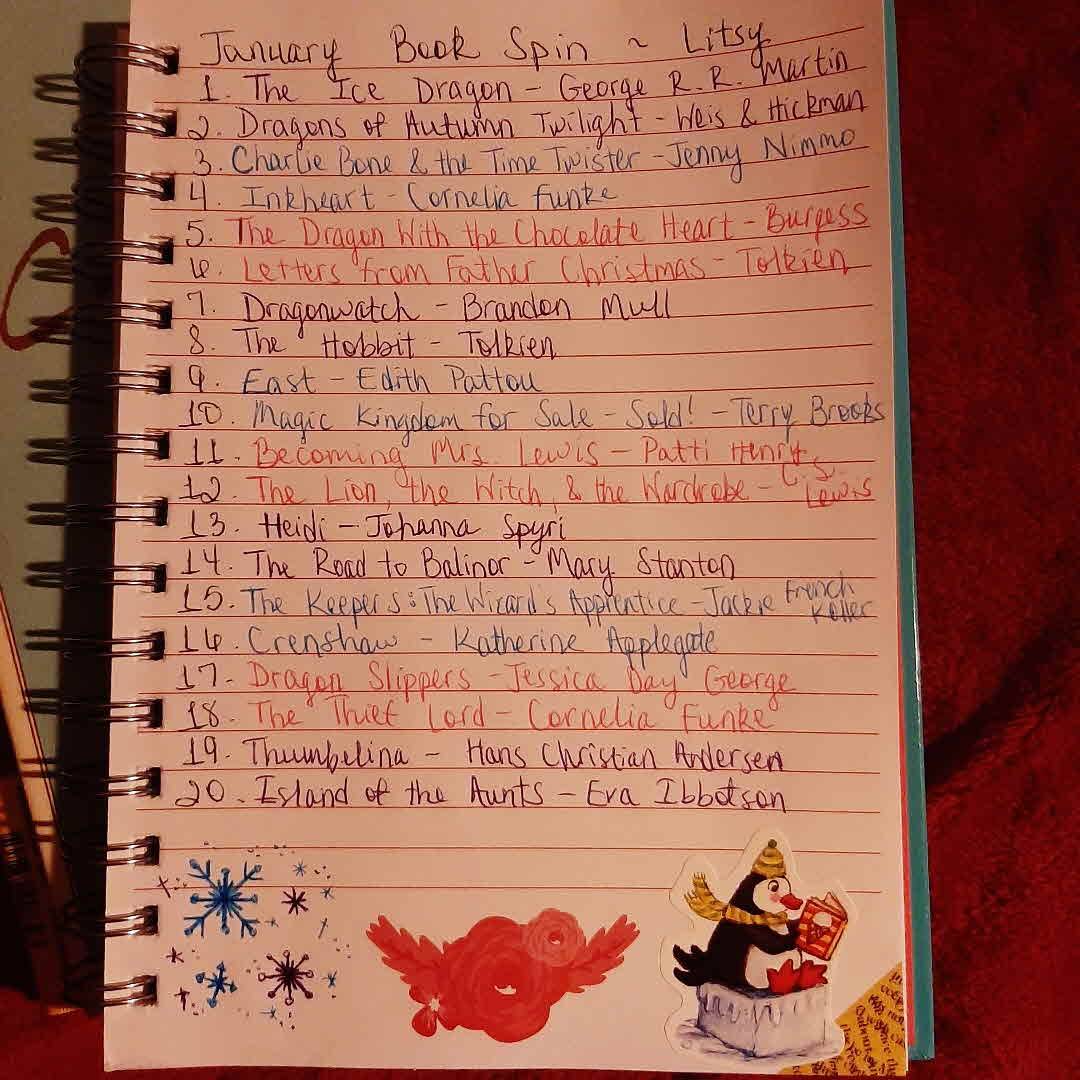 January Book Spin ~ Litsy
1. The Ice Dragon - George R.R. Martin
2. Dragons of Autumn Twilight - Weis & Hickman
3. Charlie Bone & the Time Twister - Jenny Nimmo
4. Inkheart - Cornelia Funke
5. The Dragon With the Chocolate Heart - Burgess
6. Letters from Father Christmas - Tolkien
7. Dragonwatch - Brandon Mull
8. The Hobbit - Tolkien
9. East - Edith Pattou
10. Magic Kingdom for Sale - Sold! - Terry Brooks
11. Becoming Mrs. Lewis - Patti Henry
12. The Lion, the Witch, & the Wardrobe - C.S. Lewis
13. Heidi - Johanna Spyri
14. The Road to Balinor - Mary Stanton
15. The Keepers: The Wizard's Apprentice - Jackie French Koller
16. Crenshaw - Katherine Applegate
17. Dragon Slippers - Jessica Day George
18. The Thief Lord - Cornelia Funke
19. Thumbelina - Hans Christian Andersen
20. Island of the Aunts - Eva Ibbotson